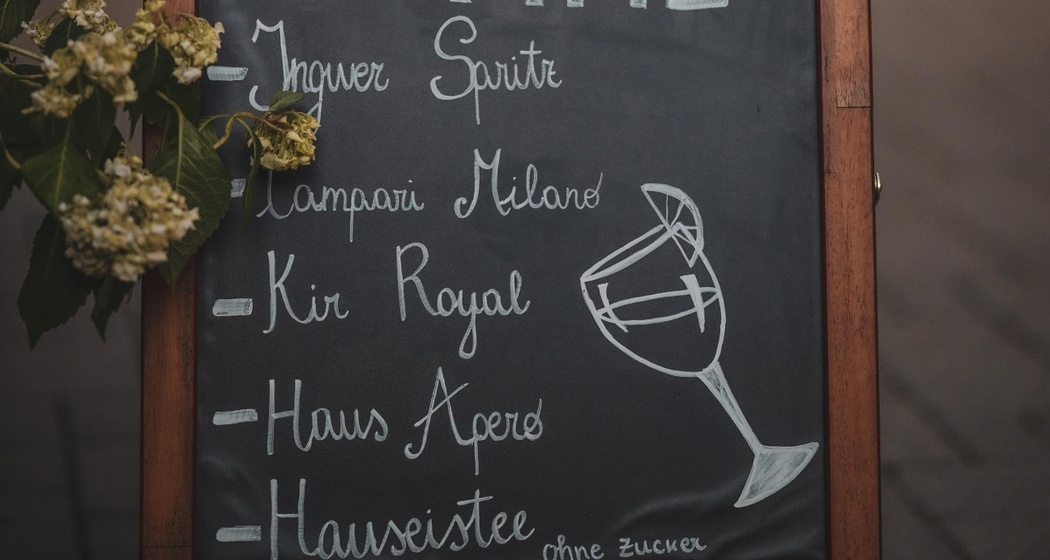 - Ingwer Spritz
- Campari Milano
- Kir Royal
- Haus Apero
- Hauseistee ohne Zucker